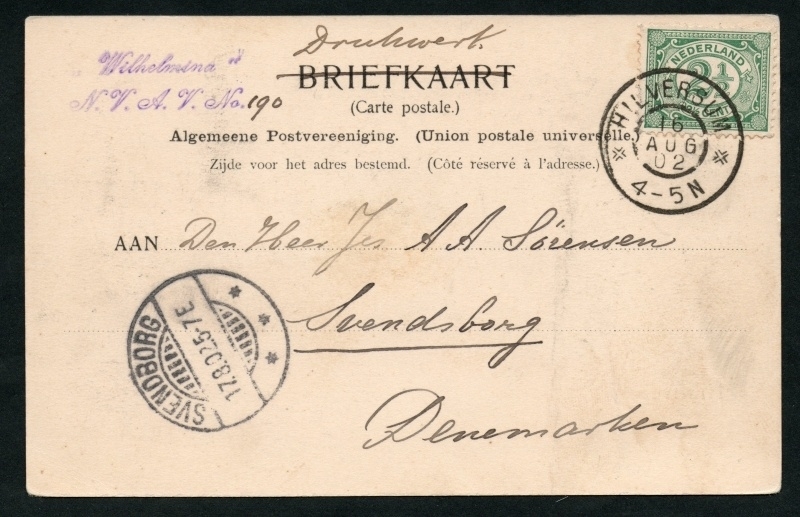 Drukwerk.
"Wilhelmina"
N. V. A. V. No. 190
BRIEFKAART
(Carte postale.)
Algemeene Postvereeniging. (Union postale universelle.)
Zijde voor het adres bestemd. (Côté réservé à l'adresse.)
NEDERLAND
2½
HILVERSUM
16
AUG
02
4-5N
AAN Den Heer Jes A A. Sörensen
Svendsborg
Denemarken
SVENDBORG
17.8.02 5-7E